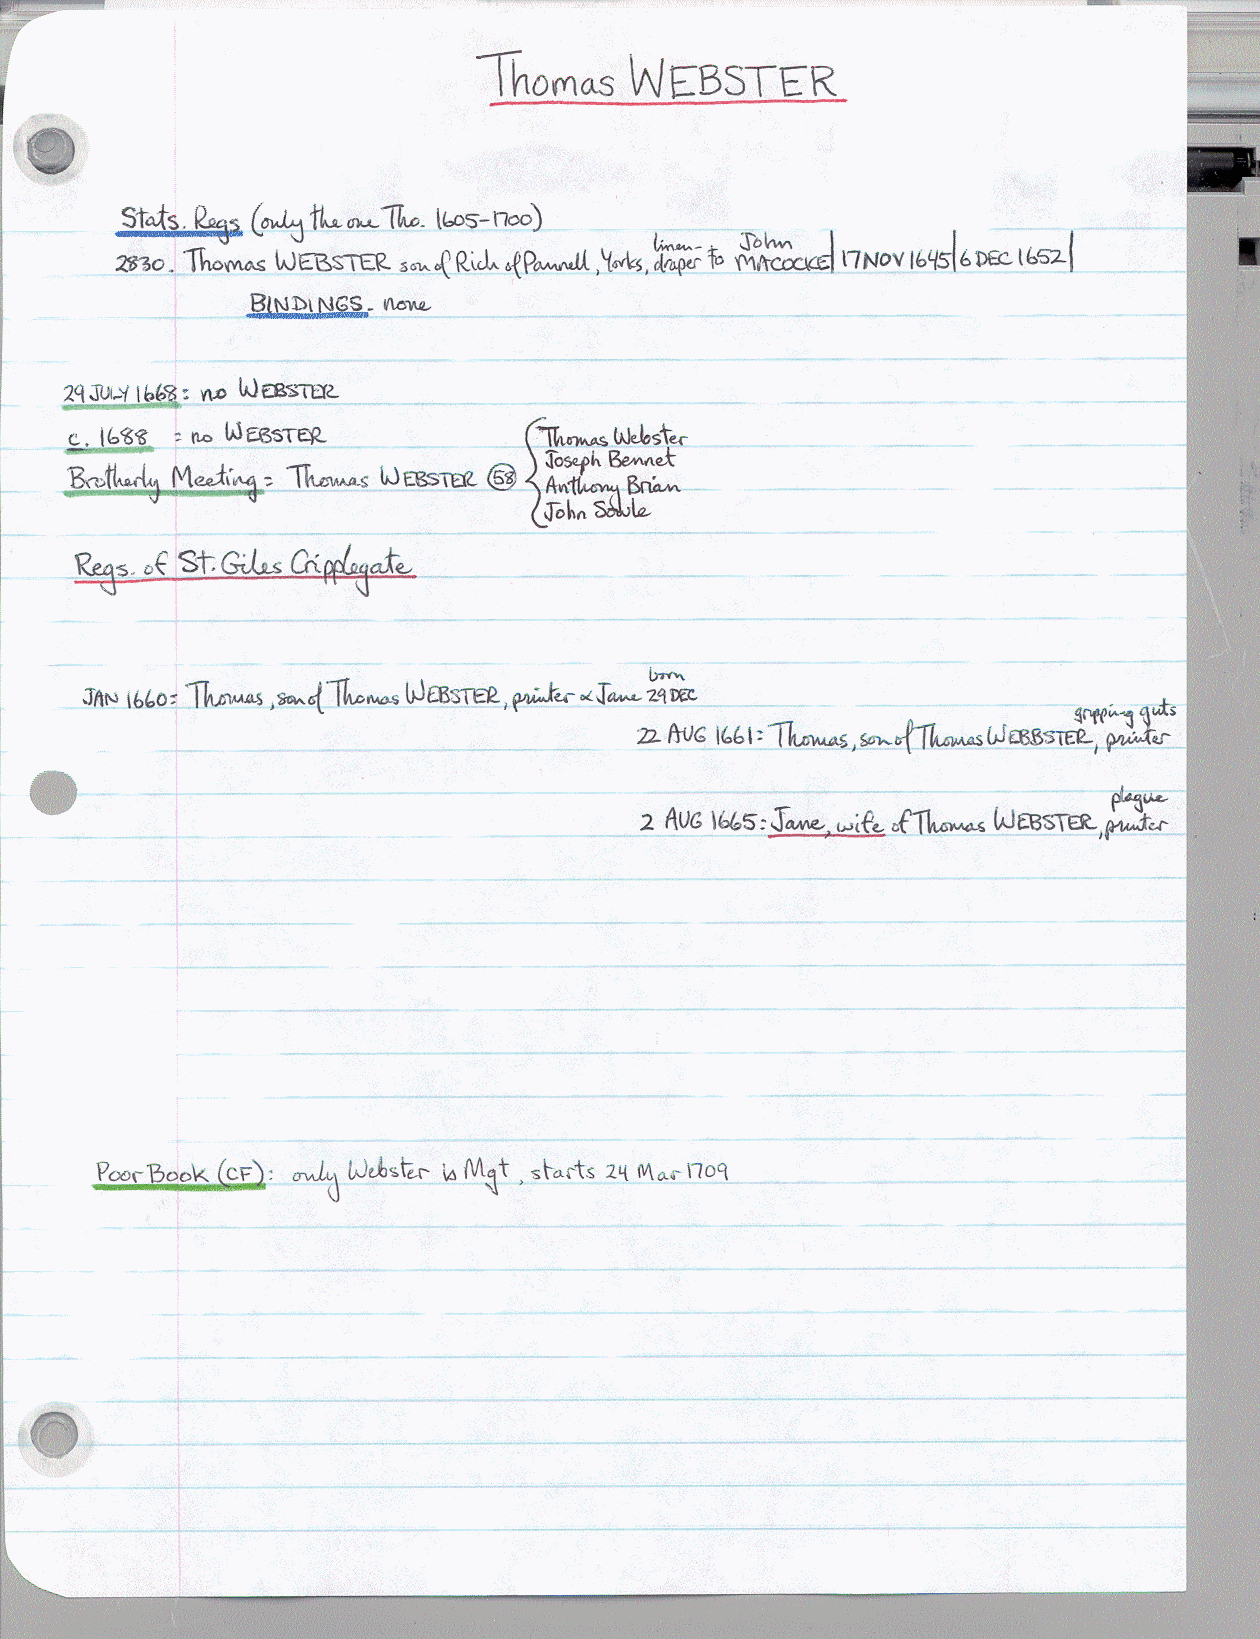 Thomas WEBSTER
Stats. Regs (only the one Tho. 1605-1700)
2830. Thomas WEBSTER son of Rich of Pannell, Yorks, linen-draper to John MACOCKE | 17 NOV 1645 | 6 DEC 1652 |
BINDINGS - none
29 JULY 1668: no WEBSTER
c. 1688 = no WEBSTER
Brotherly Meeting = Thomas WEBSTER 58
Thomas Webster
Joseph Bennet
Anthony Brian
John Sowle
Regs. of St. Giles Cripplegate
JAN 1660: Thomas, son of Thomas WEBSTER, printer & Jane born 29 DEC
22 AUG 1661: Thomas, son of Thomas WEBBSTER, printer gripping guts
2 AUG 1665: Jane, wife of Thomas WEBSTER, printer plague
Poor Book (CF): only Webster is Mgt, starts 24 Mar 1709